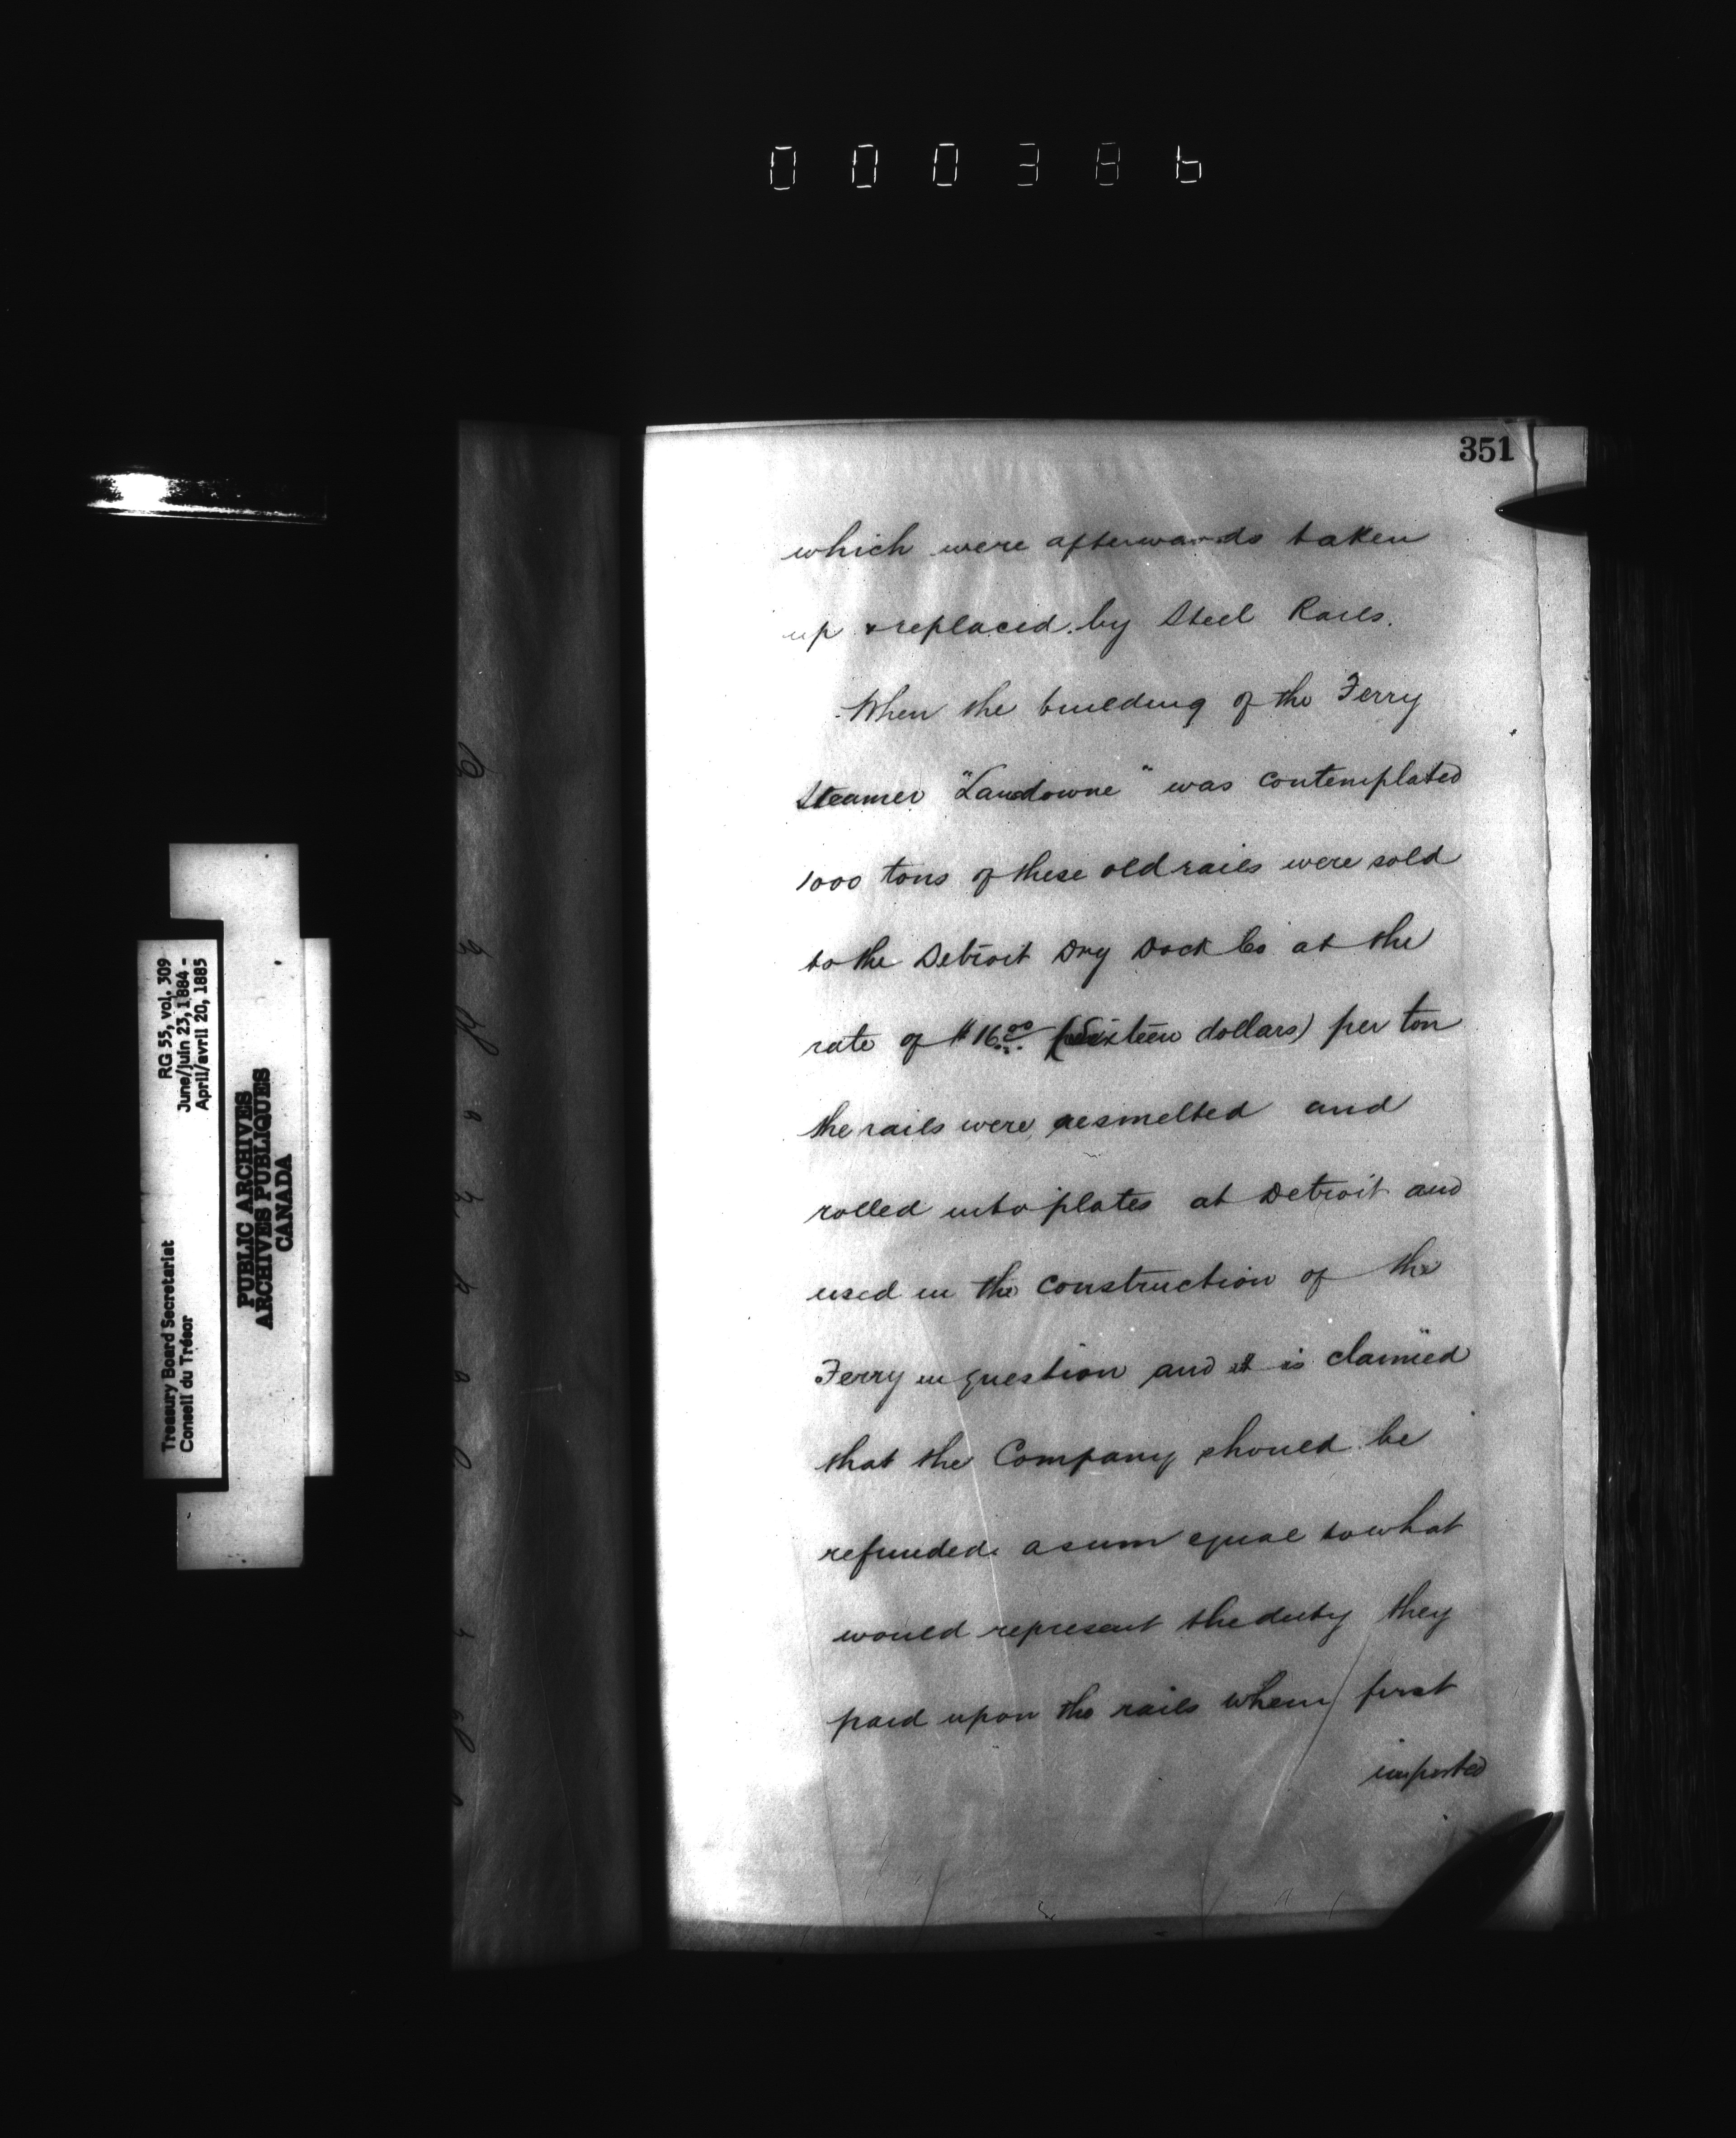 000386
351
which were afterwards taken
up & replaced by Steel Rails.
When the building of the Ferry
Steamer "Landowne" was contemplated
1000 tons of these old rails were sold
to the Detroit Dry Dock Co at the
rate of $16.00 (sixteen dollars) per ton
the rails were resmelted and
rolled into plates at Detroit and
used in the construction of the
Ferry in question and it is claimed
that the Company should be
refunded a sum equal to what
would represent the duty they
paid upon the rails when first
imported
RG 55, vol. 309
June/juin 23, 1884 -
April/avril 20, 1885
Treasury Board Secretariat
Conseil du Trésor
PUBLIC ARCHIVES
ARCHIVES PUBLIQUES
CANADA